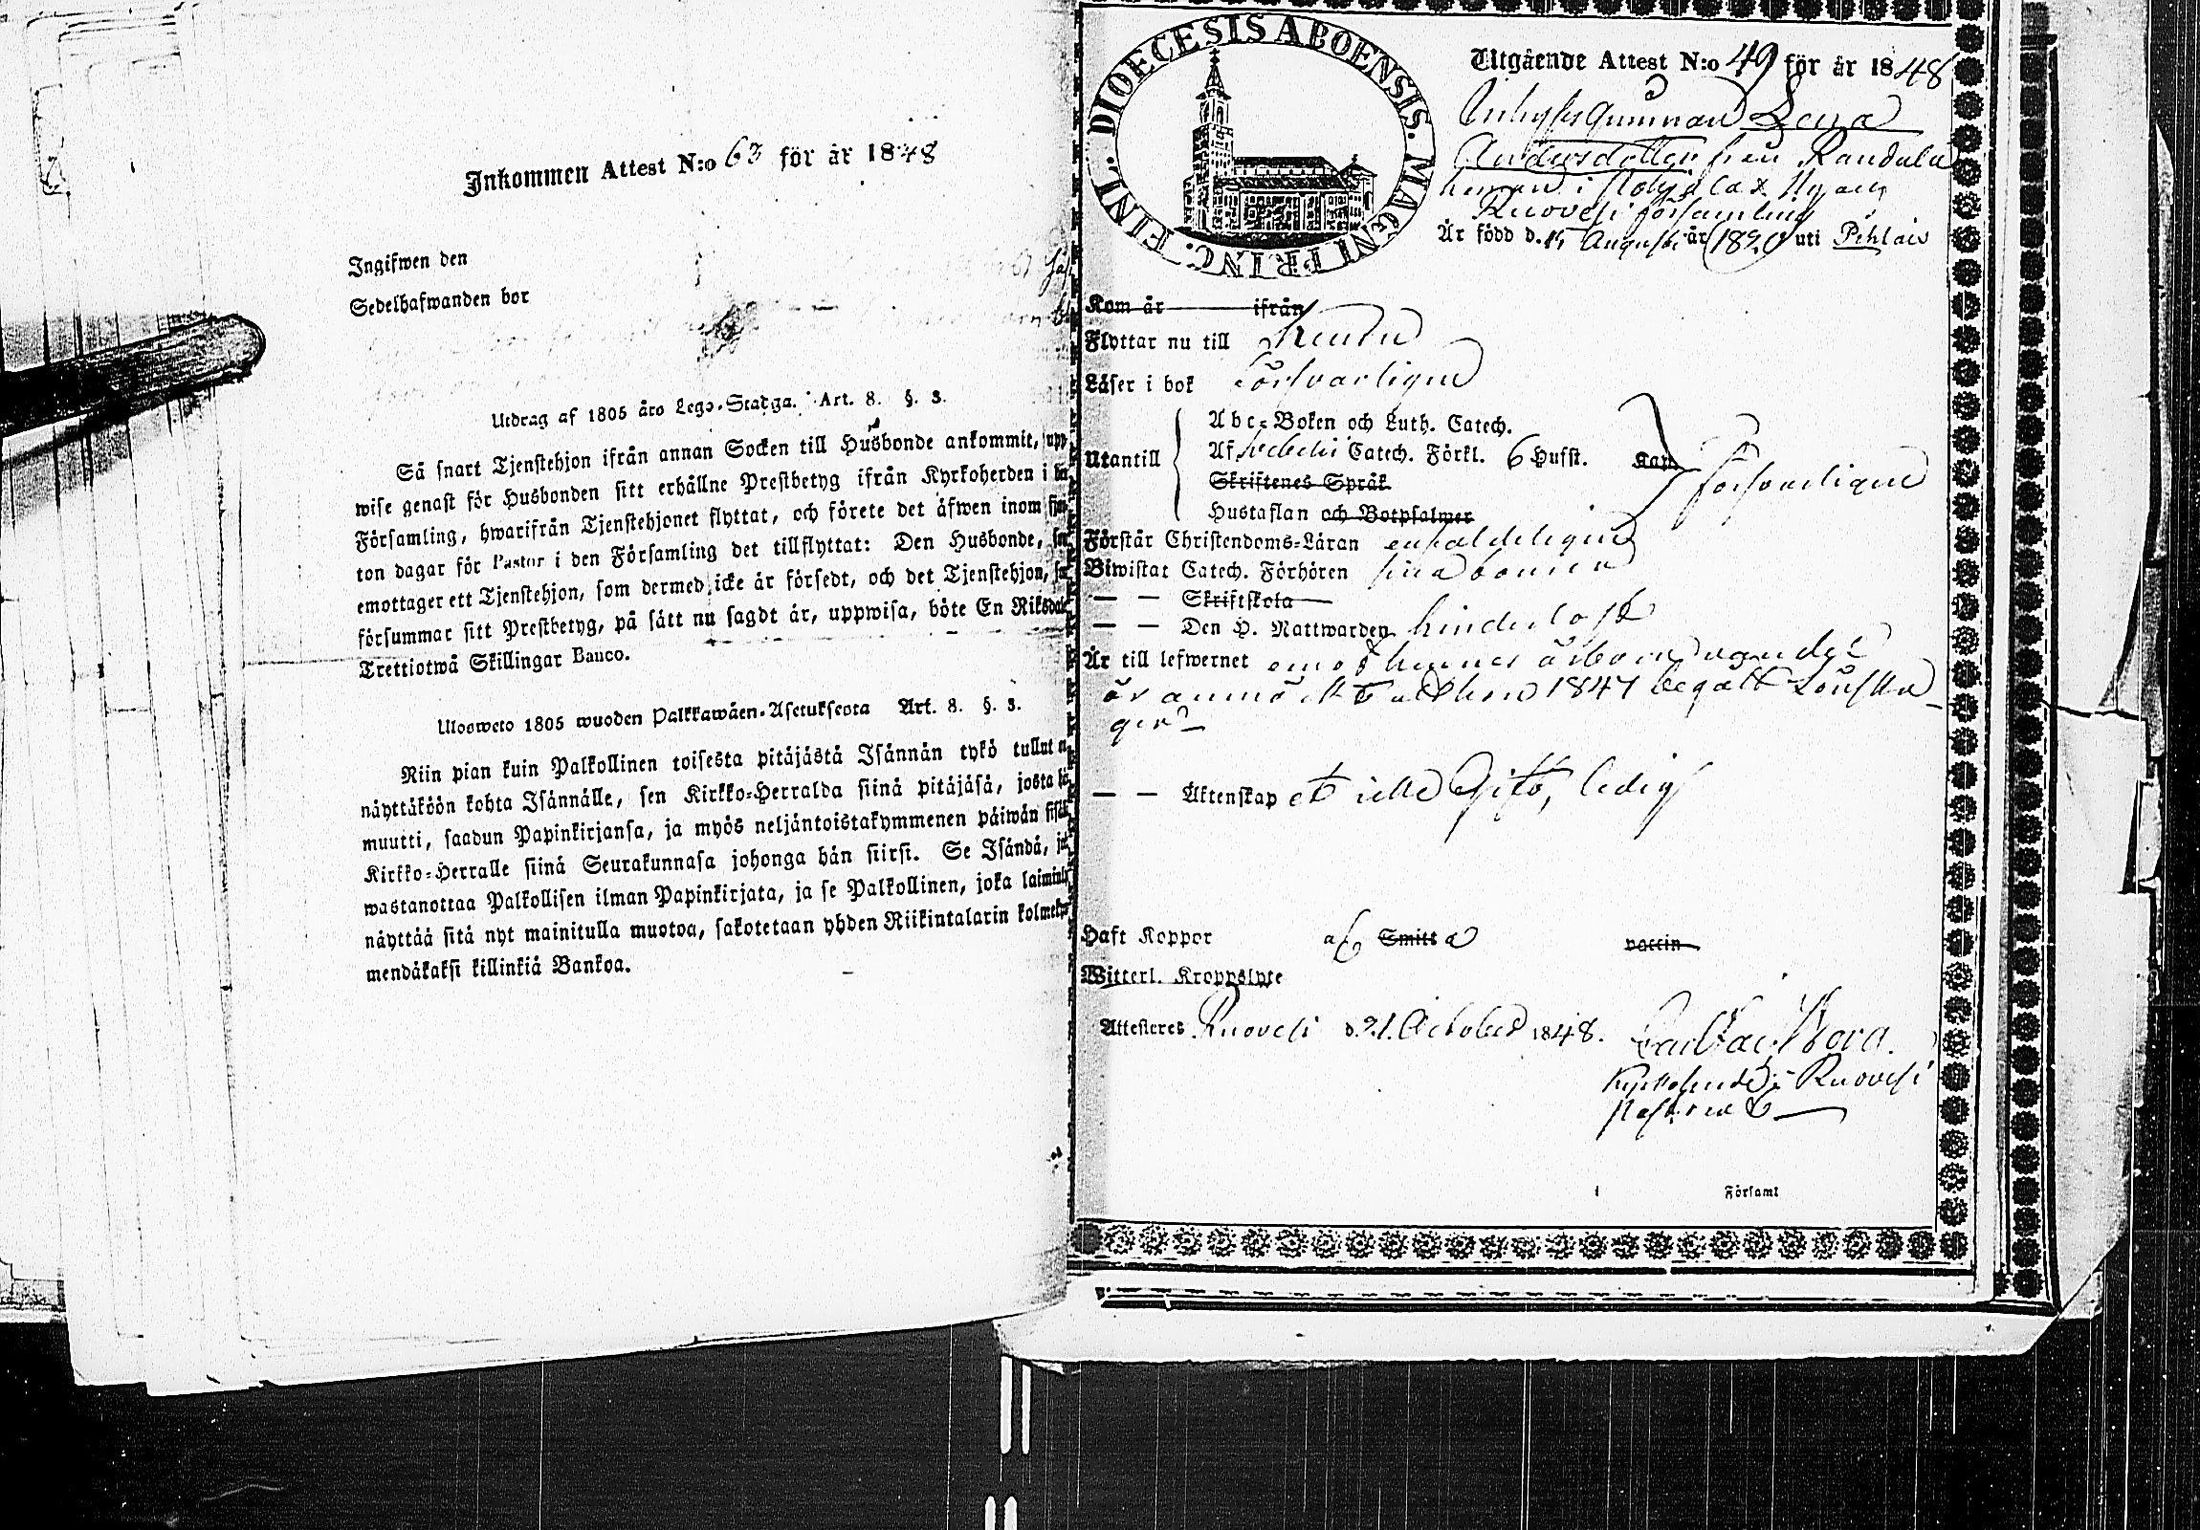 Inkommen Attest N:o 63 för år 1848
Ingifwen den
Sedelhafwanden bor
Utdrag af 1805 års Lego-Stadga. Art. 8. §. 3.
Så snart Tjenstehjon ifrån annan Socken till Husbonde ankommit, upp
wise genast för Husbonden sitt erhållne Prestbetyg ifrån Kyrkoherden i
Församling, hwarifrån Tjenstehjonet flyttat, och förete det äfwen inom
ton dagar för Pastor i den Församling det tillflyttat: Den Husbonde,
emottager ett Tjenstehjon, som dermed icke är försedt, och det Tjenstehjon,
försummar sitt Prestbetyg, på sätt nu sagdt är, uppwisa, böte En Riksdal
Trettiotwå Skillingar Banco.
Ulosweto 1805 wuoden Palkkawäen-Asetuksesta Art. 8. §. 3.
Niin pian kuin Palkollinen toisesta pitäjästä Isännän tykö tullut
näyttäköön kohta Isännälle, sen Kirkko-Herralda siinä pitäjäsä, josta
muutti, saadun Papinkirjansa, ja myös neljäntoistakymmenen päiwän
Kirkko-Herralle siinä Seurakunnasa johonga hän siirsi. Se Isändä,
wastanottaa Palkollisen ilman Papinkirjata, ja se Palkollinen, joka
näyttää sitä nyt mainitulla muotoa, sakotetaan yhden Riikintalarin
mendäkaksi killinkiä Bankoa.
DIOECESIS ABOENSIS. MAGNI PRINC. FINL.
Utgående Attest N:o 49 för år 1848
Inhysesqwinnan Lena
Andersdotter från Randala
hemman i
Ruovesi församling
Är född d. 15 Augusti år 1820 uti Pihlais
Kom år ifrån
Flyttar nu till Keuru
Läser i bok försvarligen
Abc-Boken och Luth. Catech.
Utantill Af Svebelii Catech. Förkl. 6 Husst. kan försvarligen
Skriftenes Språk
Hustaflan och Botpsalmer
Förstår Christendoms-Läran enfaldeligen
Biwistat Catech. Förhören
— — Skriftskola
— — Den H. Nattwarden hinderlöst
Är till lefwernet
är anmärkt att hon 1847 begått Lönska
ger
— — Äktenskap ej icke Gift, ledig
Haft Koppor af Smitta vaccin
Witterl. Kroppslyte
Attesteres Ruovesi d. 21 October 1848.
Kyrkoherde i Ruovesi
Församl